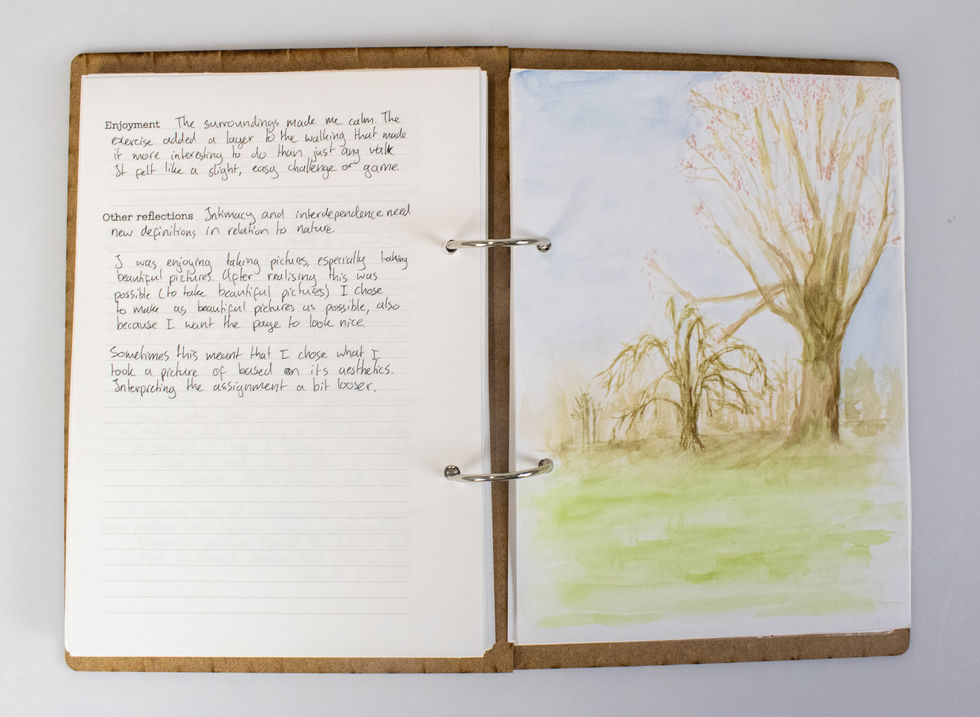 Enjoyment The surroundings made me calm. The
exercise added a layer to the walking that made
it more interesting to do than just any walk
It felt like a slight, easy challenge or game.
Other reflections Intimacy and interdependence need
new definitions in relation to nature.
I was enjoying taking pictures, especially taking
beautiful pictures. After realising this was
possible (to take beautiful pictures) I chose
to make as beautiful pictures as possible, also
because I want the page to look nice.
Sometimes this meant that I chose what I
took a picture of based on its aesthetics.
Interpreting the assignment a bit looser.